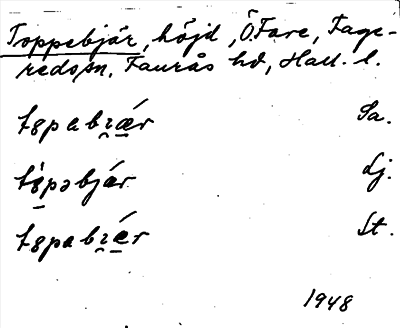 Toppebjär, höjd, Ö. Fare, Fage-
reds sn, Faurås hd, Hall. l.
tȣpabı̯ǽ̠r Sa.
tȣ̠̀pəbjǽr Lj.
tȣpabı̯ǽ̠r St.
1948